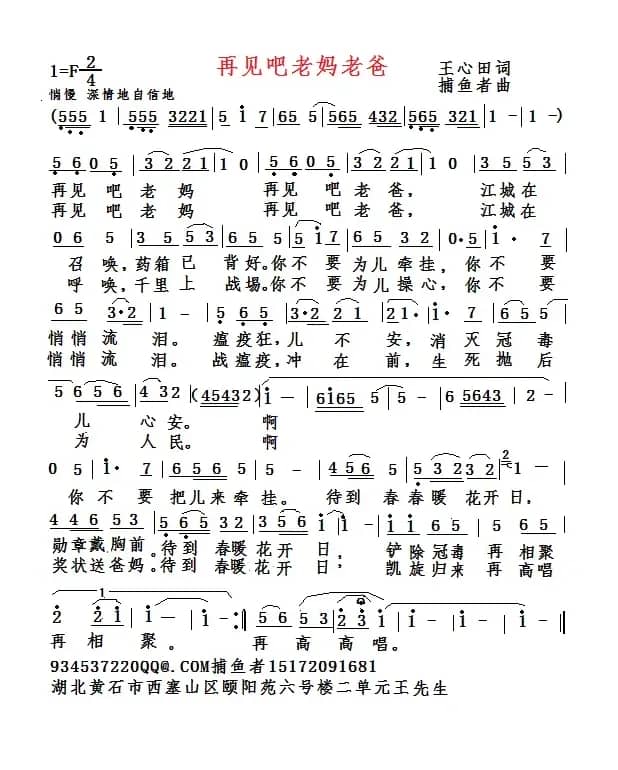 再见吧老妈老爸
1=F 2/4
王心田词
捕鱼者曲
悄慢 深情地自信地
(555 1 | 555 3221 | 5 1 7 | 65 5 | 565 432 | 565 321 | 1 - | 1 -)
5 6 0 5 | 3 2 2 1 | 1 0 | 5 6 0 5 | 3 2 2 1 | 1 0 | 3 5 5 3 |
再见 吧 老 妈 再见 吧 老 爸， 江城在
再见 吧 老 妈 再见 吧 老 爸， 江城在
0 6 5 | 3 5 5 3 | 6 5 5 | 3 5 5 1 | 7 6 5 3 2 | 0 · 5 | 1 · 7 |
召 唤，药箱已 背好。你不要 为儿牵挂，你 不 要
呼 唤，千里上 战場。你不要 为儿操心，你 不 要
6 5 3·2 | 1 - | 5 6 5 | 3·2 2 1 | 2·1 | 1· 7 |
悄悄流 泪。 瘟疫狂，儿 不 安，消 灭冠 毒
悄悄流 泪。 战瘟疫，冲 在 前，生 死抛 后
5 6 5 6 | 4 3 2 | (45432) | 1 — | 6165 5 | 5 - | 6 5643 | 2 - |
儿 心安。 啊
为 人民。 啊
0 5 | 1· 7 | 5 6 5 6 | 5 - | 4 5 6 | 5 3 2 3 2 | 1 — |
你 不 要 把儿来 牵 挂。 待到 春春暖 花开日，
4 4 6 5 3 | 5 6 5 | 3 3 5 6 | 1 1 | 1 6 5 | 5 6 5 |
勋章戴胸前。待到 春暖 花 开 日， 铲除冠毒 再 相聚
奖状送爸妈。待到 春暖 花 开 日， 凯旋归来 再 高唱
2 2 1 | 1 - | 1 - :| 5 6 5 3 | 2 3 | 1 - | 1 - |
再 相 聚。 再 高 高 唱。
934537220QQ@.COM捕鱼者15172091681
湖北黄石市西塞山区颐阳苑六号楼二单元王先生